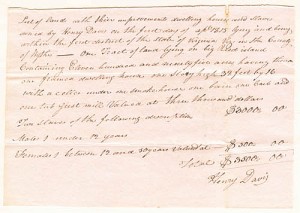 List of land with their improvement dwelling houses and slaves
owned by Henry Davis on the first day of April 1815 lying and being
within the first district of the State of Virginia Viz in the County
of One Tract of land lying on big island
Containing Eleven hundred and Seventy five acres having thereon
one framed dwelling house one Story high 38 feet by 16
with a cellar under one smoke house one barn one Crib and
one Grist mill Valued at three thousand dollars
$3000.00
Two Slaves of the following description
Males 1 under 12 years
Females 1 between 12 and 50 years Valued at $ 500 00
Total $ 3500 00
Henry Davis